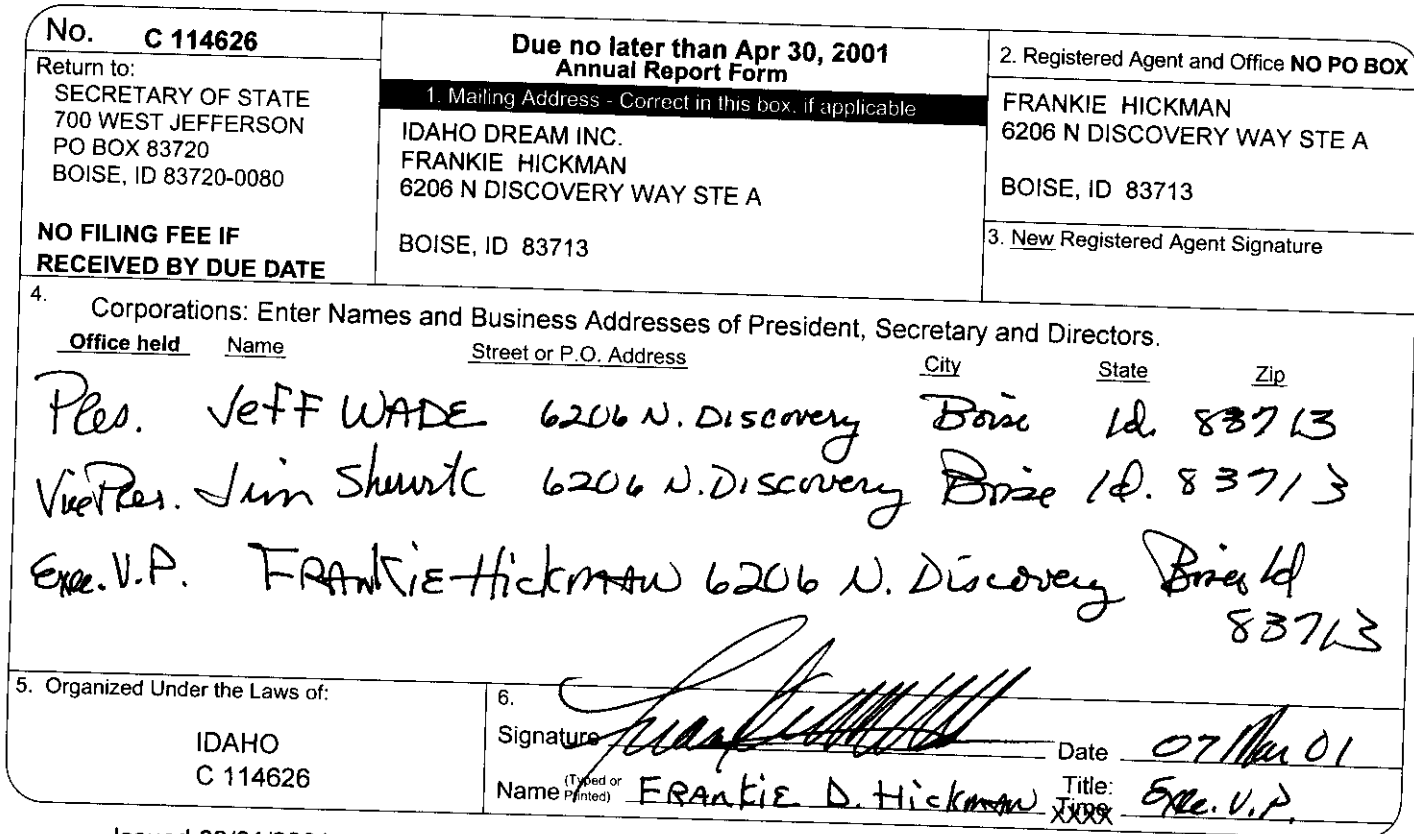 No. C 114626
Return to:
SECRETARY OF STATE
700 WEST JEFFERSON
PO BOX 83720
BOISE, ID 83720-0080
NO FILING FEE IF
RECEIVED BY DUE DATE
Due no later than Apr 30, 2001
Annual Report Form
1. Mailing Address - Correct in this box, if applicable
IDAHO DREAM INC.
FRANKIE HICKMAN
6206 N DISCOVERY WAY STE A
BOISE, ID 83713
2. Registered Agent and Office NO PO BOX
FRANKIE HICKMAN
6206 N DISCOVERY WAY STE A
BOISE, ID 83713
3. New Registered Agent Signature
4. Corporations: Enter Names and Business Addresses of President, Secretary and Directors.
Office held Name Street or P.O. Address City State Zip
Pres. Jeff WADE 6206 N. Discovery Boise Id. 83713
Vice Pres. Jim 6206 N. Discovery Boise Id. 83713
Exec. V.P. FRANKIE HICKMAN 6206 N. Discovery Boise, Id
83713
5. Organized Under the Laws of:
IDAHO
C 114626
6.
Signature Date 07 Mar 01
Name (Typed or Printed) FRANKIE D. Hickman Title: Exec. V.P.